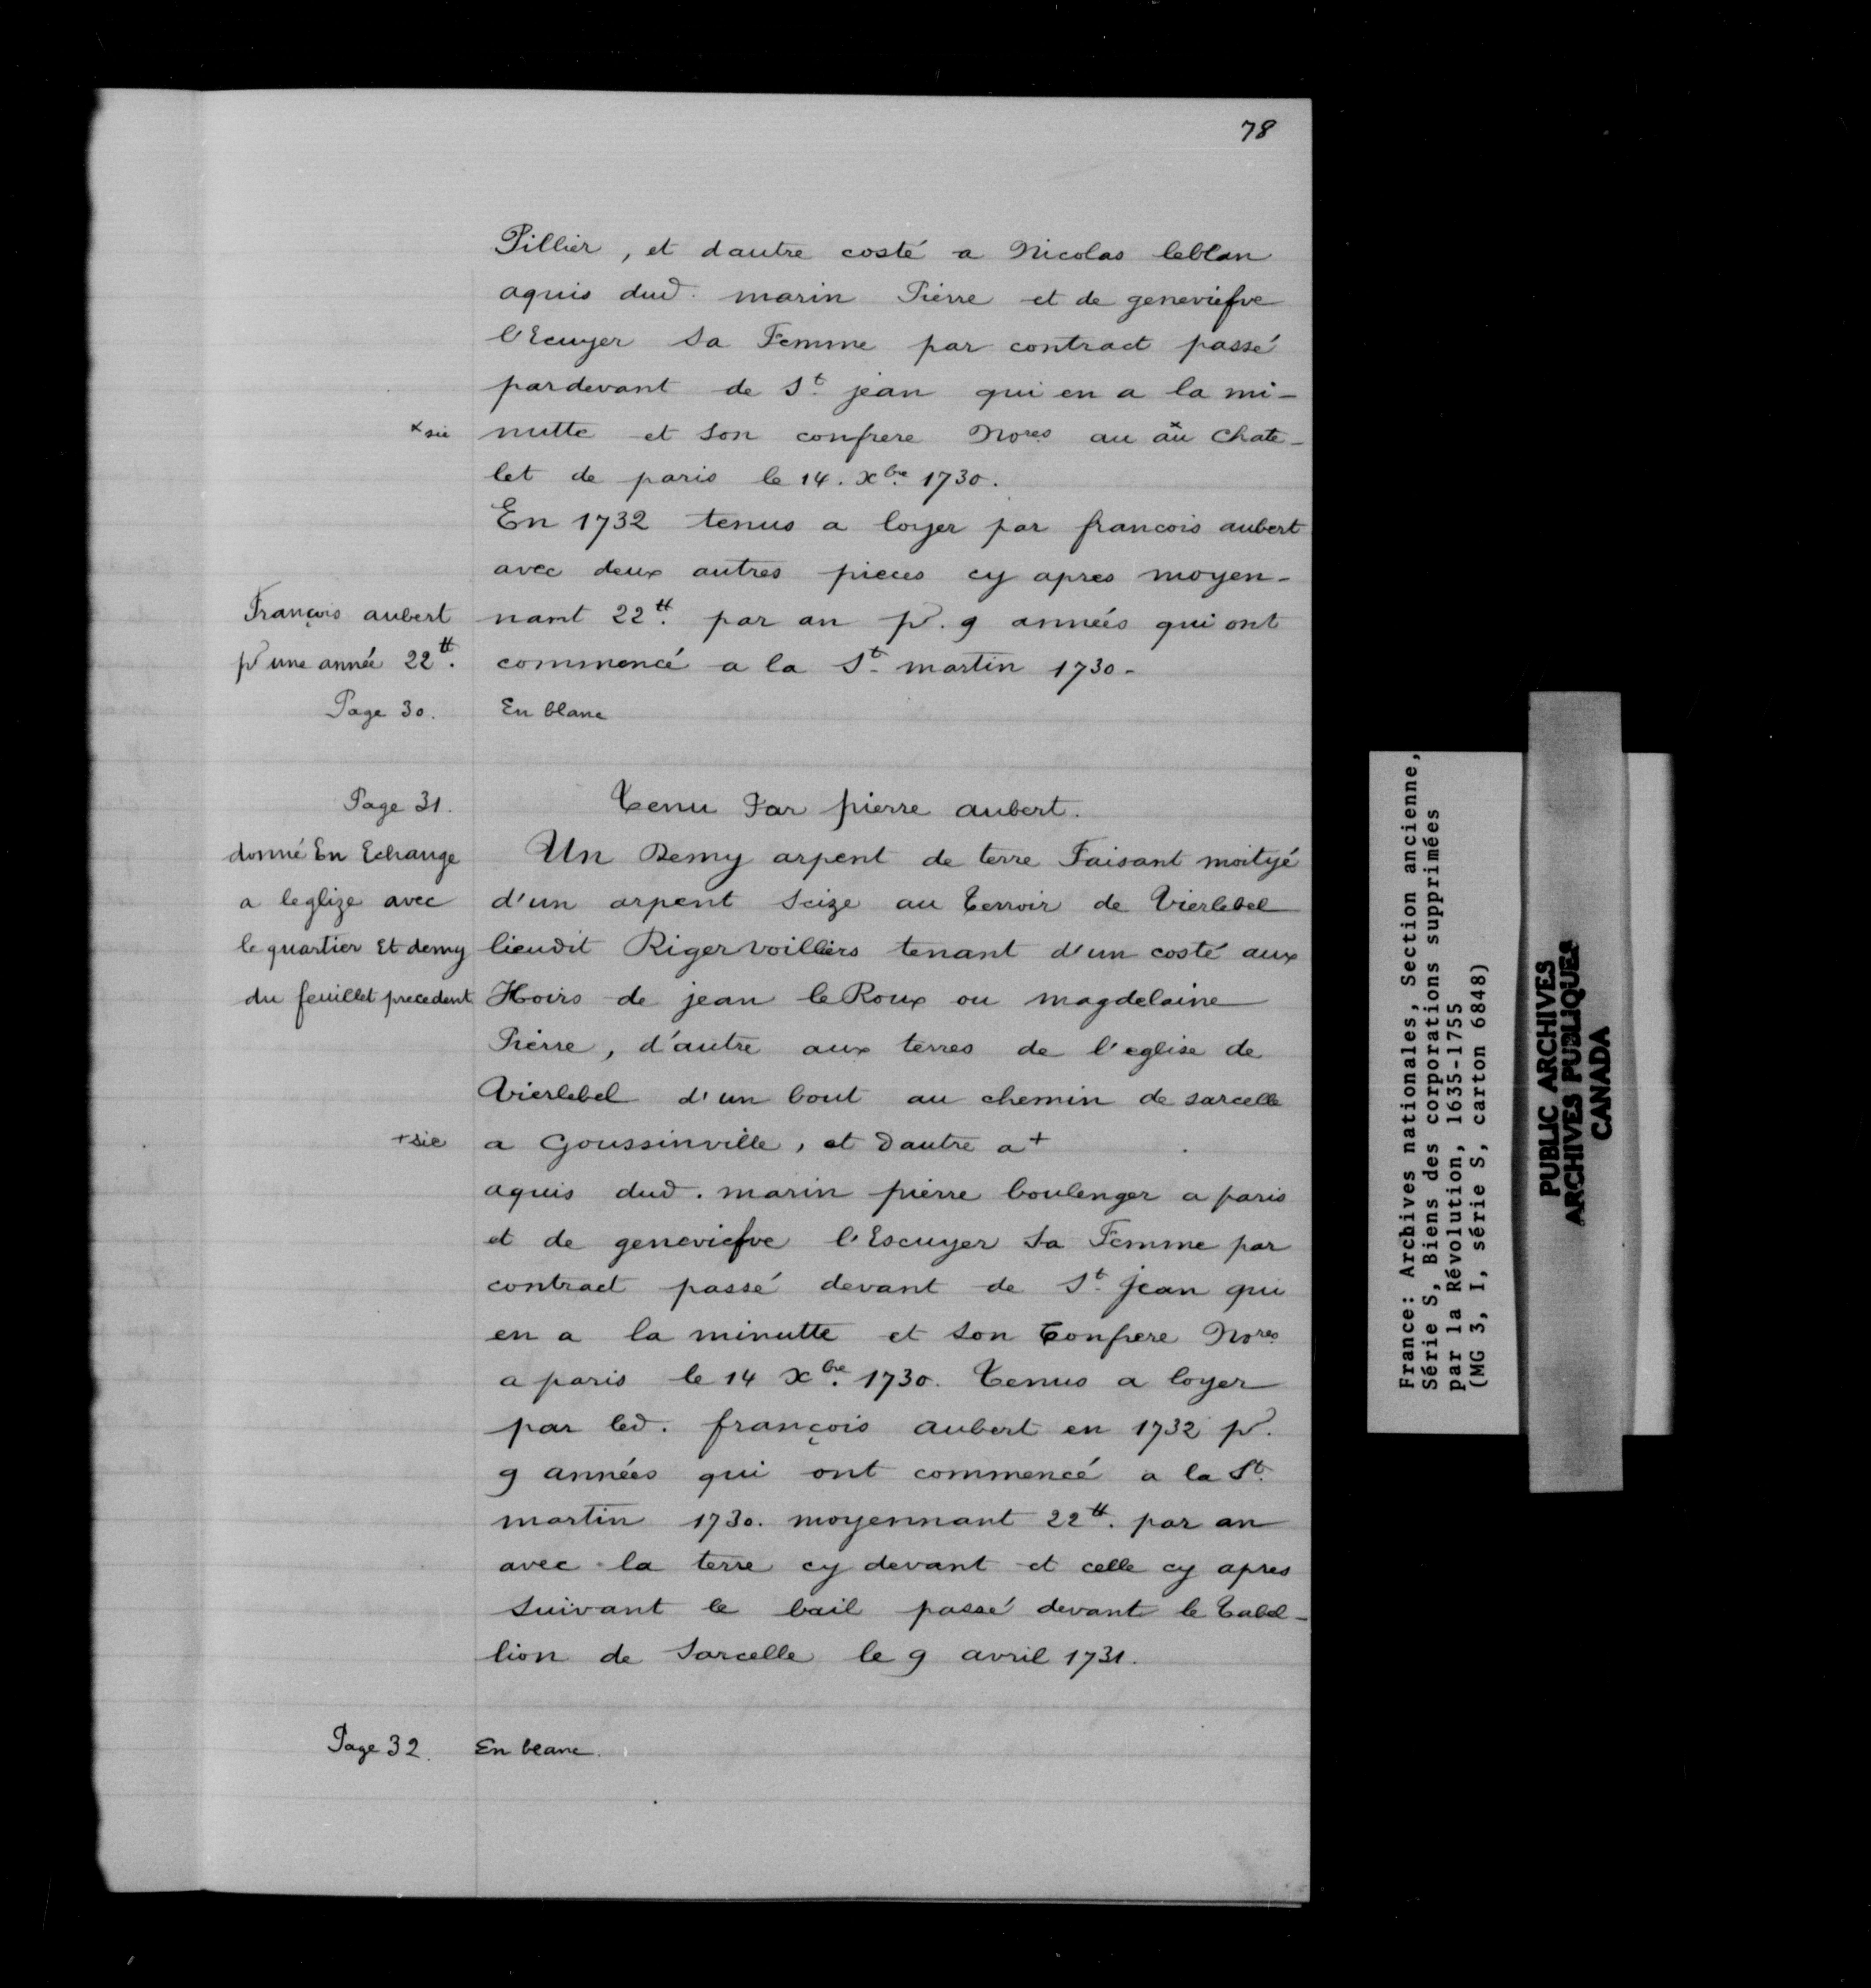 78
Pillier, et dautre costé a Nicolas leblan
aquis dud. marin Pierre et de geneviefve
l'Ecuyer sa Femme par contract passé
pardevant de St. jean qui en a la mi-
x sic
nutte et son confrere Nores au au x chate-
let de paris le 14. Xbre 1730.
En 1732 tenus a loyer par francois aubert
avec deux autres pieces cy apres moyen-
François aubert
nant 22tt. par an pr. 9 années qui ont
pr une année 22tt.
commencé a la St. martin 1730-
Page 30.
En blanc
Page 31.
Tenu Par pierre aubert.
donné En Echange
Un Demy arpent de terre Faisant moityé
a leglize avec
d'un arpent seize au terroir de Vierlebel
le quartier Et demy
lieudit Rigervoilliers tenant d'un costé aux
du feuillet precedent
Hoirs de jean le Roux ou magdelaine
Pierre, d'autre aux terres de l'eglise de
Vierlebel d'un bout au chemin de sarcelle
+ sic
a Goussinville, et dautre a +
aquis dud. marin pierre boulenger a paris
et de geneviefve l'Escuyer sa Femme par
contract passé devant de St. Jean qui
en a la minutte et son Confrere Nores
a paris le 14 Xbre. 1730. Tenus a loyer
par led. françois aubert en 1732 pr.
9 années qui ont commencé a la St.
martin 1730. moyennant 22tt. par an
avec la terre cy devant et celle cy apres
suivant le bail passé devant le Tabel-
lion de Sarcelle le 9 avril 1731.
Page 32.
En blanc.
France: Archives nationales, Section ancienne,
Série S, Biens des corporations supprimées
par la Révolution, 1635-1755
(MG 3, I, série S, carton 6848)
PUBLIC ARCHIVES
ARCHIVES PUBLIQUES
CANADA